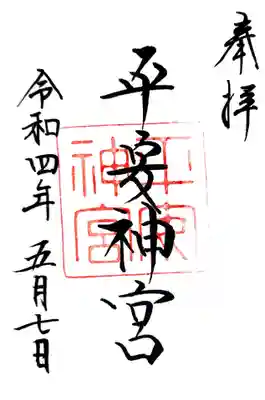 奉拝
平安神宮
令和四年 五月七日
平安神宮